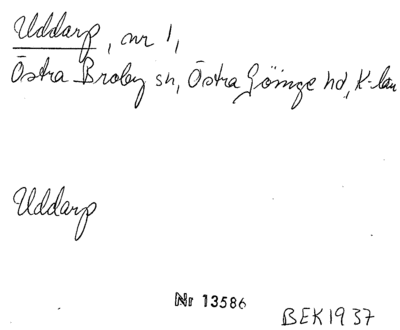 Uddarp, nr 1,
Östra Broby sn, Östra Göinge hd, K-län
Uddarp
Nr 13586
BEK1937